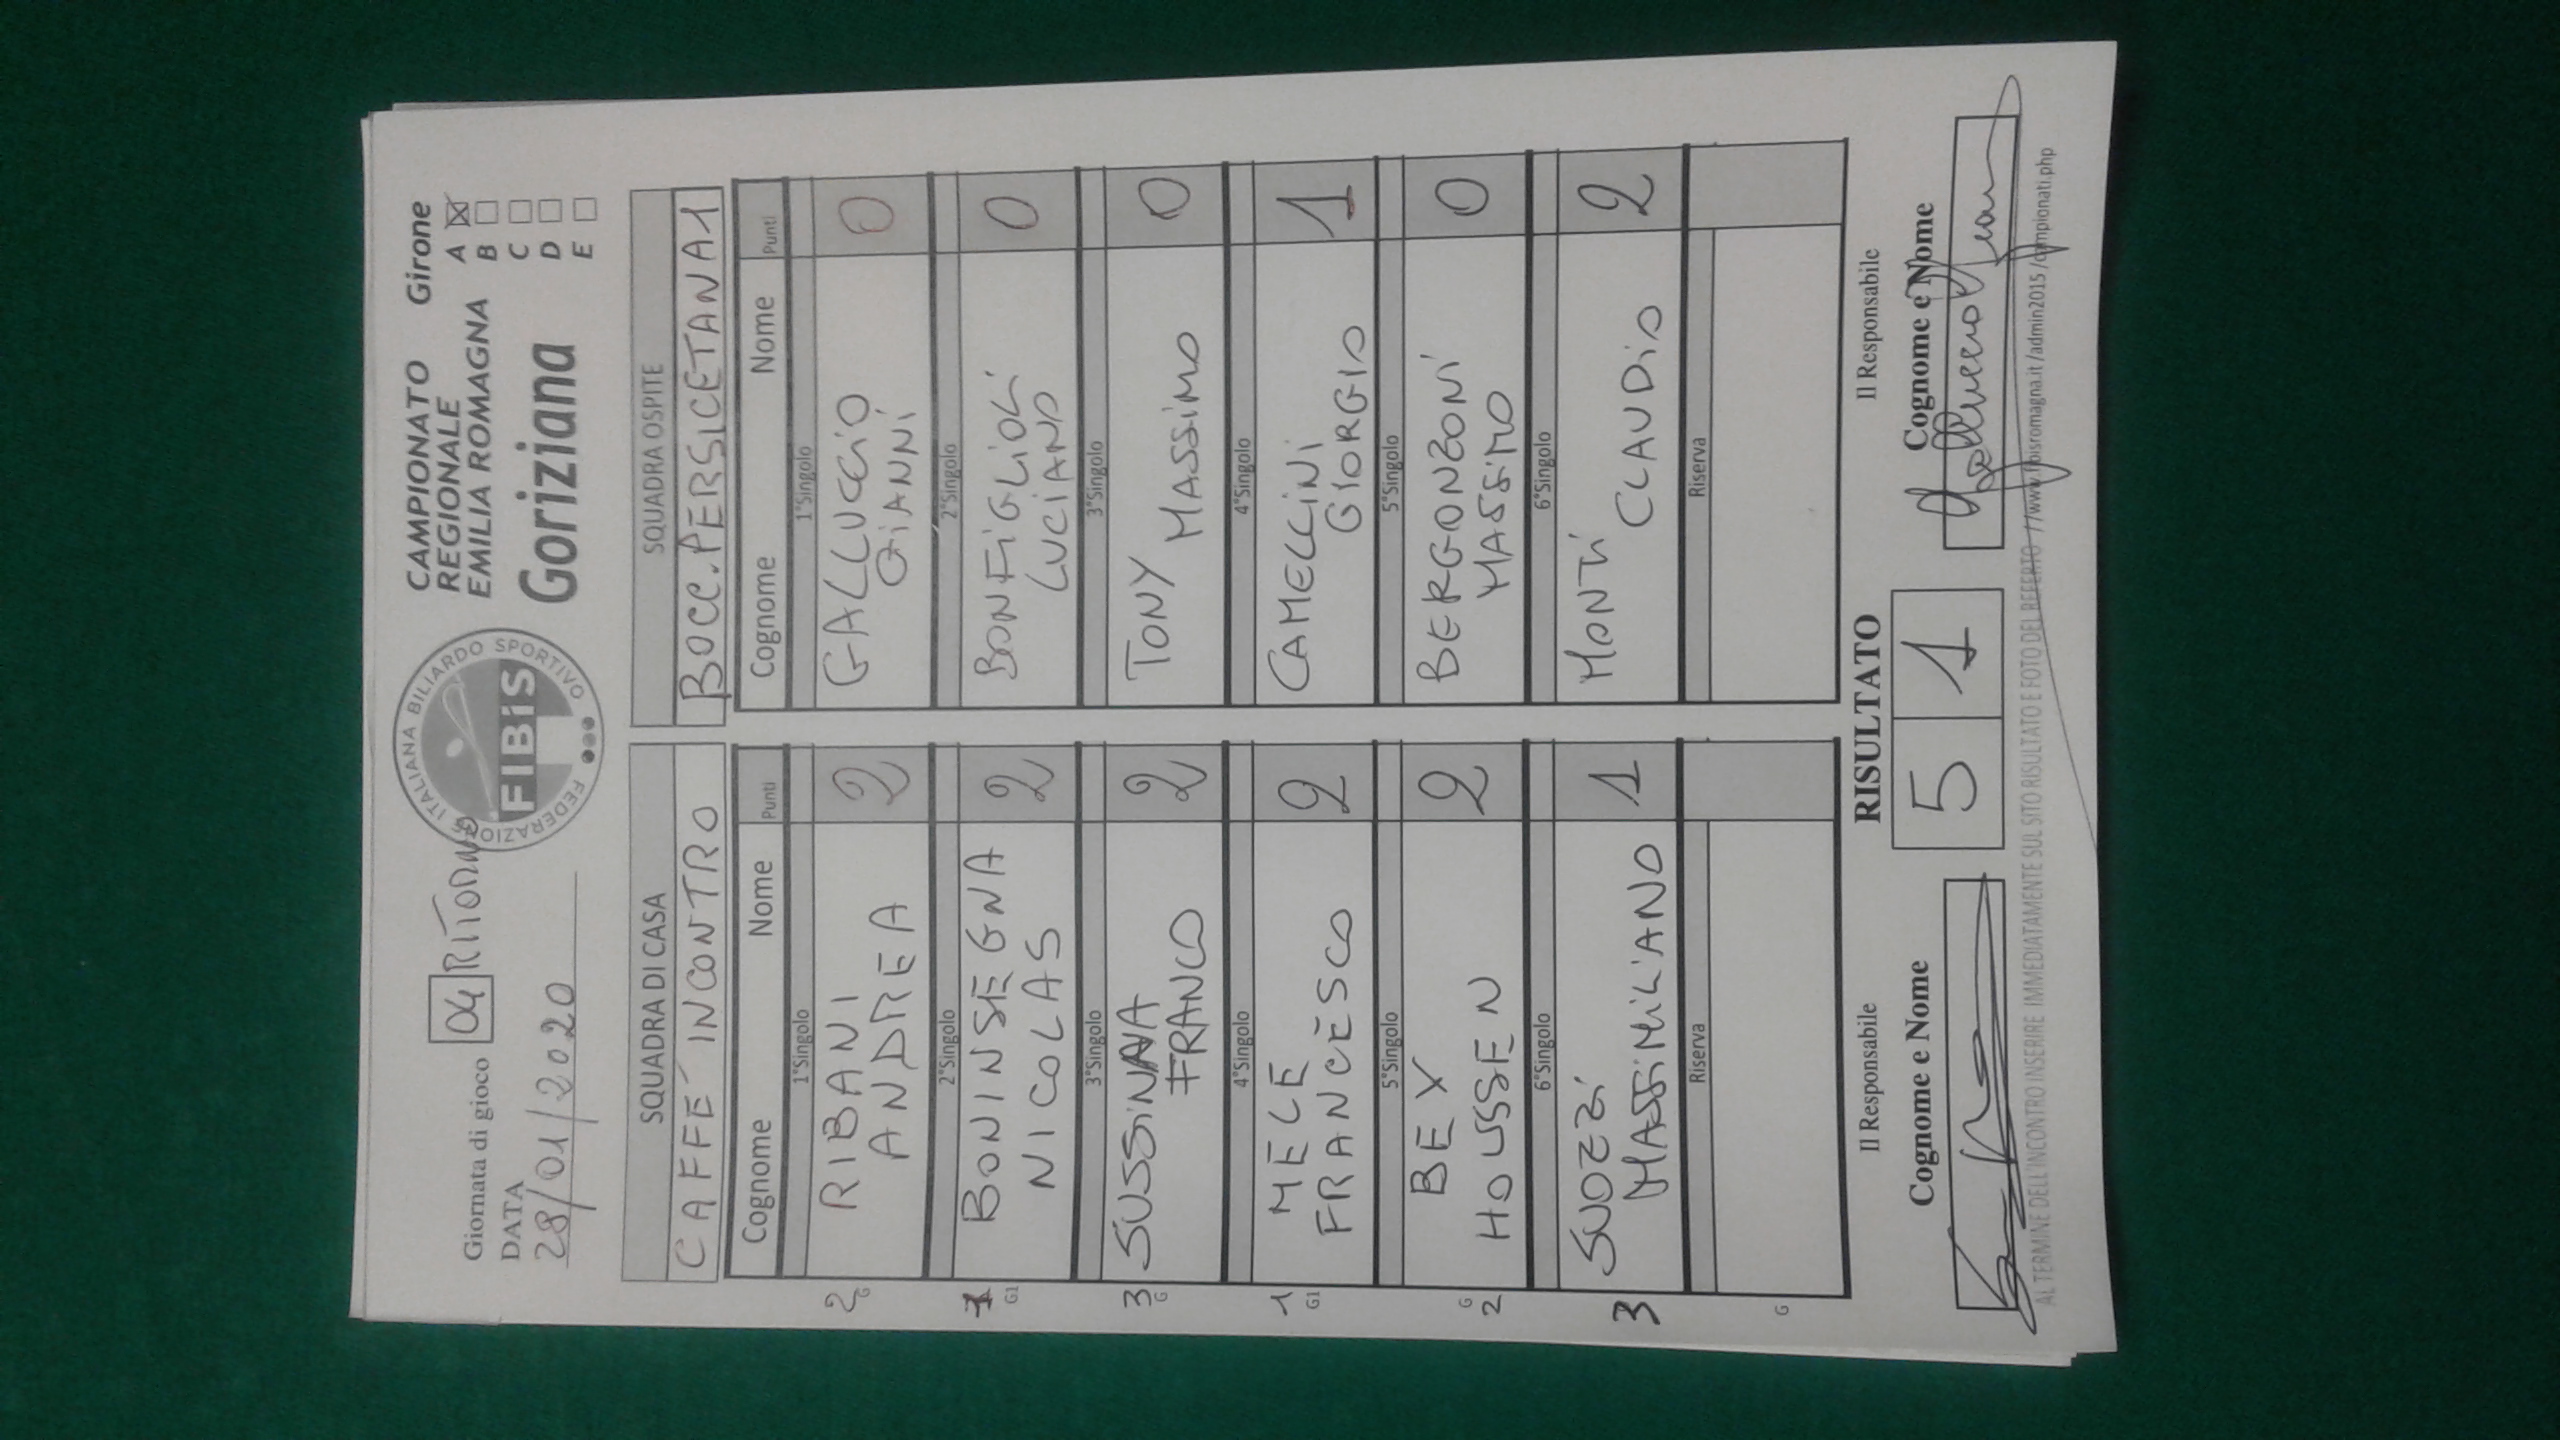 Giornata di gioco 04 RITORNO
DATA
28/01/2020
FEDERAZIONE ITALIANA BILIARDO SPORTIVO
FIBiS
CAMPIONATO
REGIONALE
EMILIA ROMAGNA
Goriziana
Girone
A ☒
B ☐
C ☐
D ☐
E ☐
SQUADRA DI CASA SQUADRA OSPITE
CAFFE' INCONTRO BOCC. PERSICETANA 1
Cognome Nome Punti Cognome Nome Punti
1°Singolo 1°Singolo
2 G RIBANI ANDREA 2 GALLUCCIO GIANNI 0
2°Singolo 2°Singolo
1 G1 BONINSEGNA NICOLAS 2 BONFIGLIOLI LUCIANO 0
3°Singolo 3°Singolo
3 G FRANCO 2 TONY MASSIMO 0
4°Singolo 4°Singolo
1 G1 MELE FRANCESCO 2 CAMELLINI GIORGIO 1
5°Singolo 5°Singolo
G 2 BEY HOUSSEN 2 BERGONZONI MASSIMO 0
6°Singolo 6°Singolo
3 SUOZZI MASSIMILIANO 1 MONTI CLAUDIO 2
Riserva Riserva
G
Il Responsabile RISULTATO Il Responsabile
Cognome e Nome 5 1 Cognome e Nome
AL TERMINE DELL'INCONTRO INSERIRE IMMEDIATAMENTE SUL SITO RISULTATO E FOTO DEL REFERTO //www.fibisromagna.it/admin2015/campionati.php